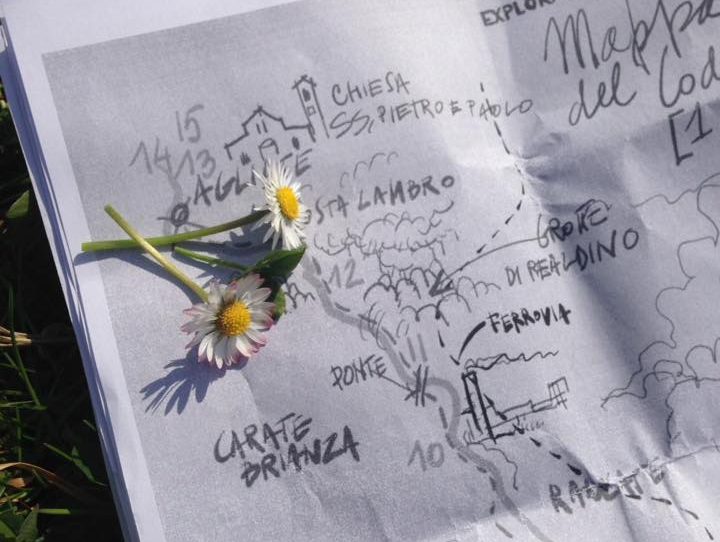 EXPLOR
Mappa
del Cod
[1
CHIESA
SS. PIETRO E PAOLO
15
14 13
AGLIATE
STA LAMBRO
GROTTE
DI REALDINO
12
FERROVIA
11
PONTE
CARATE
BRIANZA
10